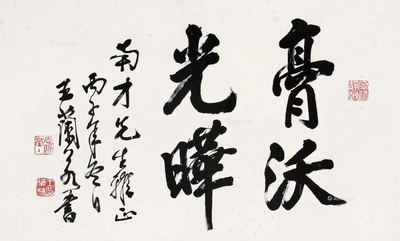 膏沃
光曄
南才先生雅正
丙子年冬日
王蘭若書